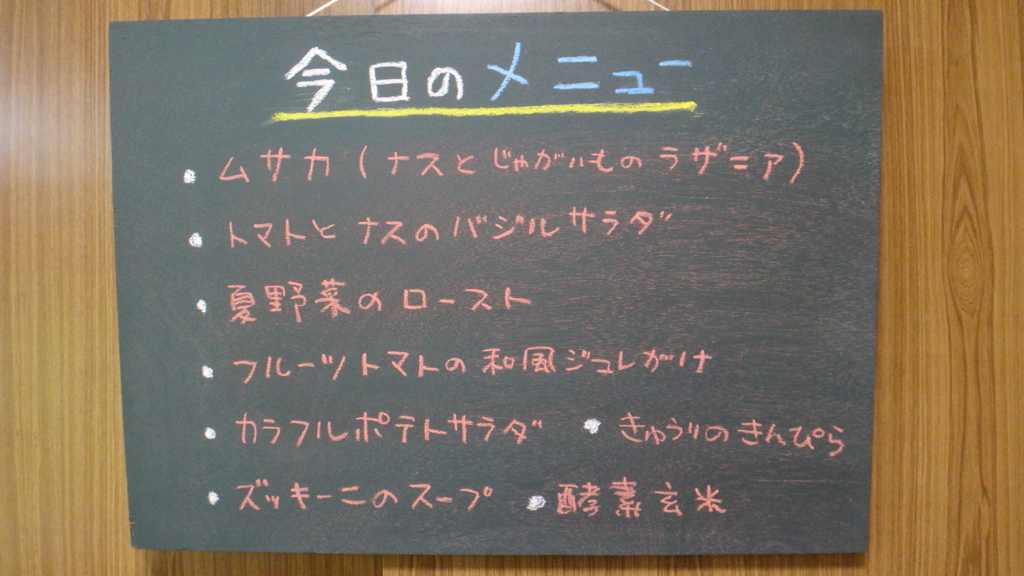 今日のメニュー
・ムサカ(ナスとじゃがいものラザニア)
・トマトとナスのバジルサラダ
・夏野菜のロースト
・フルーツトマトの和風ジュレがけ
・カラフルポテトサラダ ・きゅうりのきんぴら
・ズッキーニのスープ ・酵素玄米